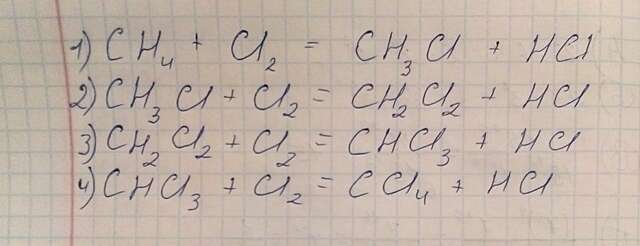 1) CH₄ + Cl₂ = CH₃Cl + HCl
2) CH₃Cl + Cl₂ = CH₂Cl₂ + HCl
3) CH₂Cl₂ + Cl₂ = CHCl₃ + HCl
4) CHCl₃ + Cl₂ = CCl₄ + HCl